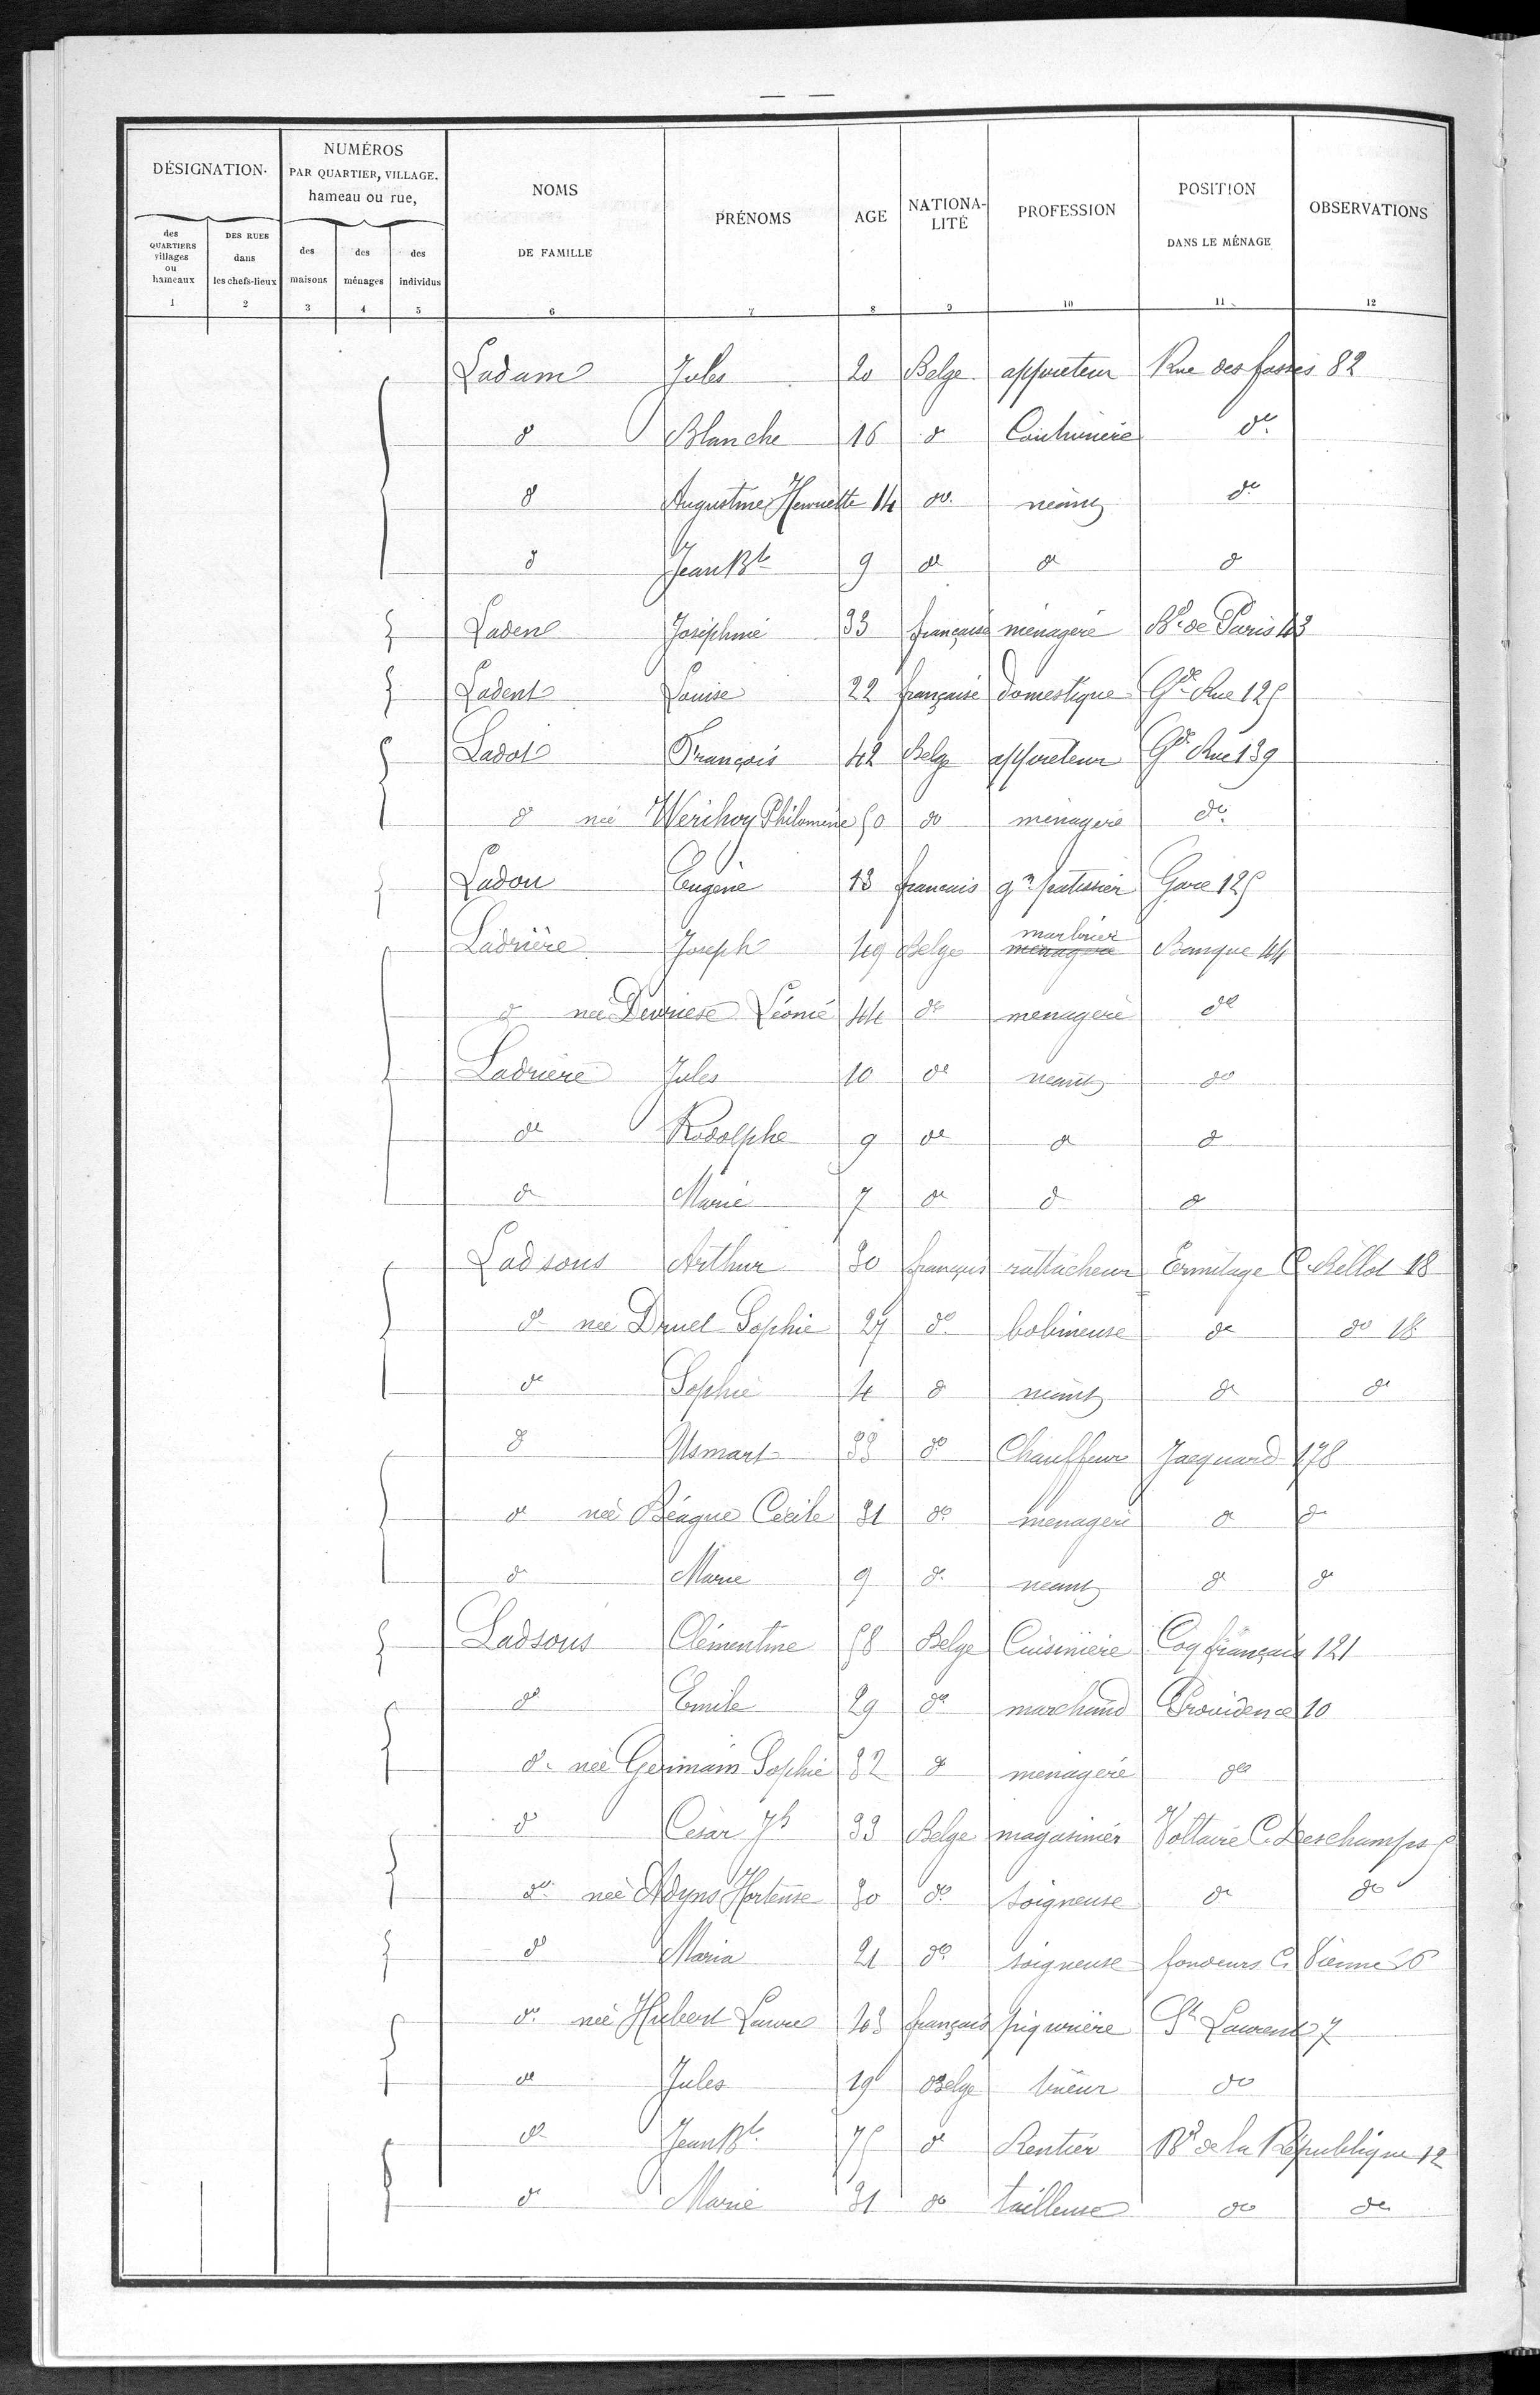 DÉSIGNATION.
NUMÉROS
PAR QUARTIER, VILLAGE.
hameau ou rue,
NOMS
DE FAMILLE
PRÉNOMS
AGE
NATIONA-
LITÉ
PROFESSION
POSITION
DANS LE MÉNAGE
OBSERVATIONS
des QUARTIERS villages ou hameaux
DES RUES dans les chefs-lieux
des maisons
des ménages
des individus
1 2 3 4 5 6 7 8 9 10 11 12
Ladam Jules 20 Belge apprêteur Rue des fossés 82
do Blanche 16 do Couturière do
do Augustine Henriette 14 do néant do
do Jean Bte 9 do do do
Laden Joséphine 33 française ménagère Bd de Paris 43
Ladent Louise 22 française domestique Gde Rue 125
Ladot François 42 Belge apprêteur Gde Rue 139
do née Werihoy Philomène 50 do ménagère do
Ladou Eugène 13 français gn patissier Gare 125
Ladrière Joseph 49 Belge marbrier ménagère Banque 44
do née Devriese Léonie 44 do menagère do
Ladrière Jules 10 do néant do
do Rodolphe 9 do do do
do Marie 7 do do do
Ladsous Arthur 30 français rattacheur Ermitage C. Bellot 18
do née Druel Sophie 27 do bobineuse do do 18
do Sophie 4 do néant do do
do Usmart 33 do Chauffeur Jacquard 178
do née Béague Cécile 31 do menagère do do
do Marie 9 do néant do do
Ladsous Clémentine 58 Belge Cuisinière Coq français 121
do Emile 29 do marchand Providence 10
do née Germain Sophie 32 do menagère do
do César Jh 33 Belge magasinier Voltaire C. Deschamps 5
do née Adyns Hortense 30 do soigneuse do do
do Maria 21 do soigneuse fondeurs C. Vienne 6
do née Hubert Laure 43 français piqurière St Laurent 7
do Jules 19 Belge trieur do
do Jean Bte 75 do Rentier Bd de la République 12
do Marie 31 do tailleuse do do